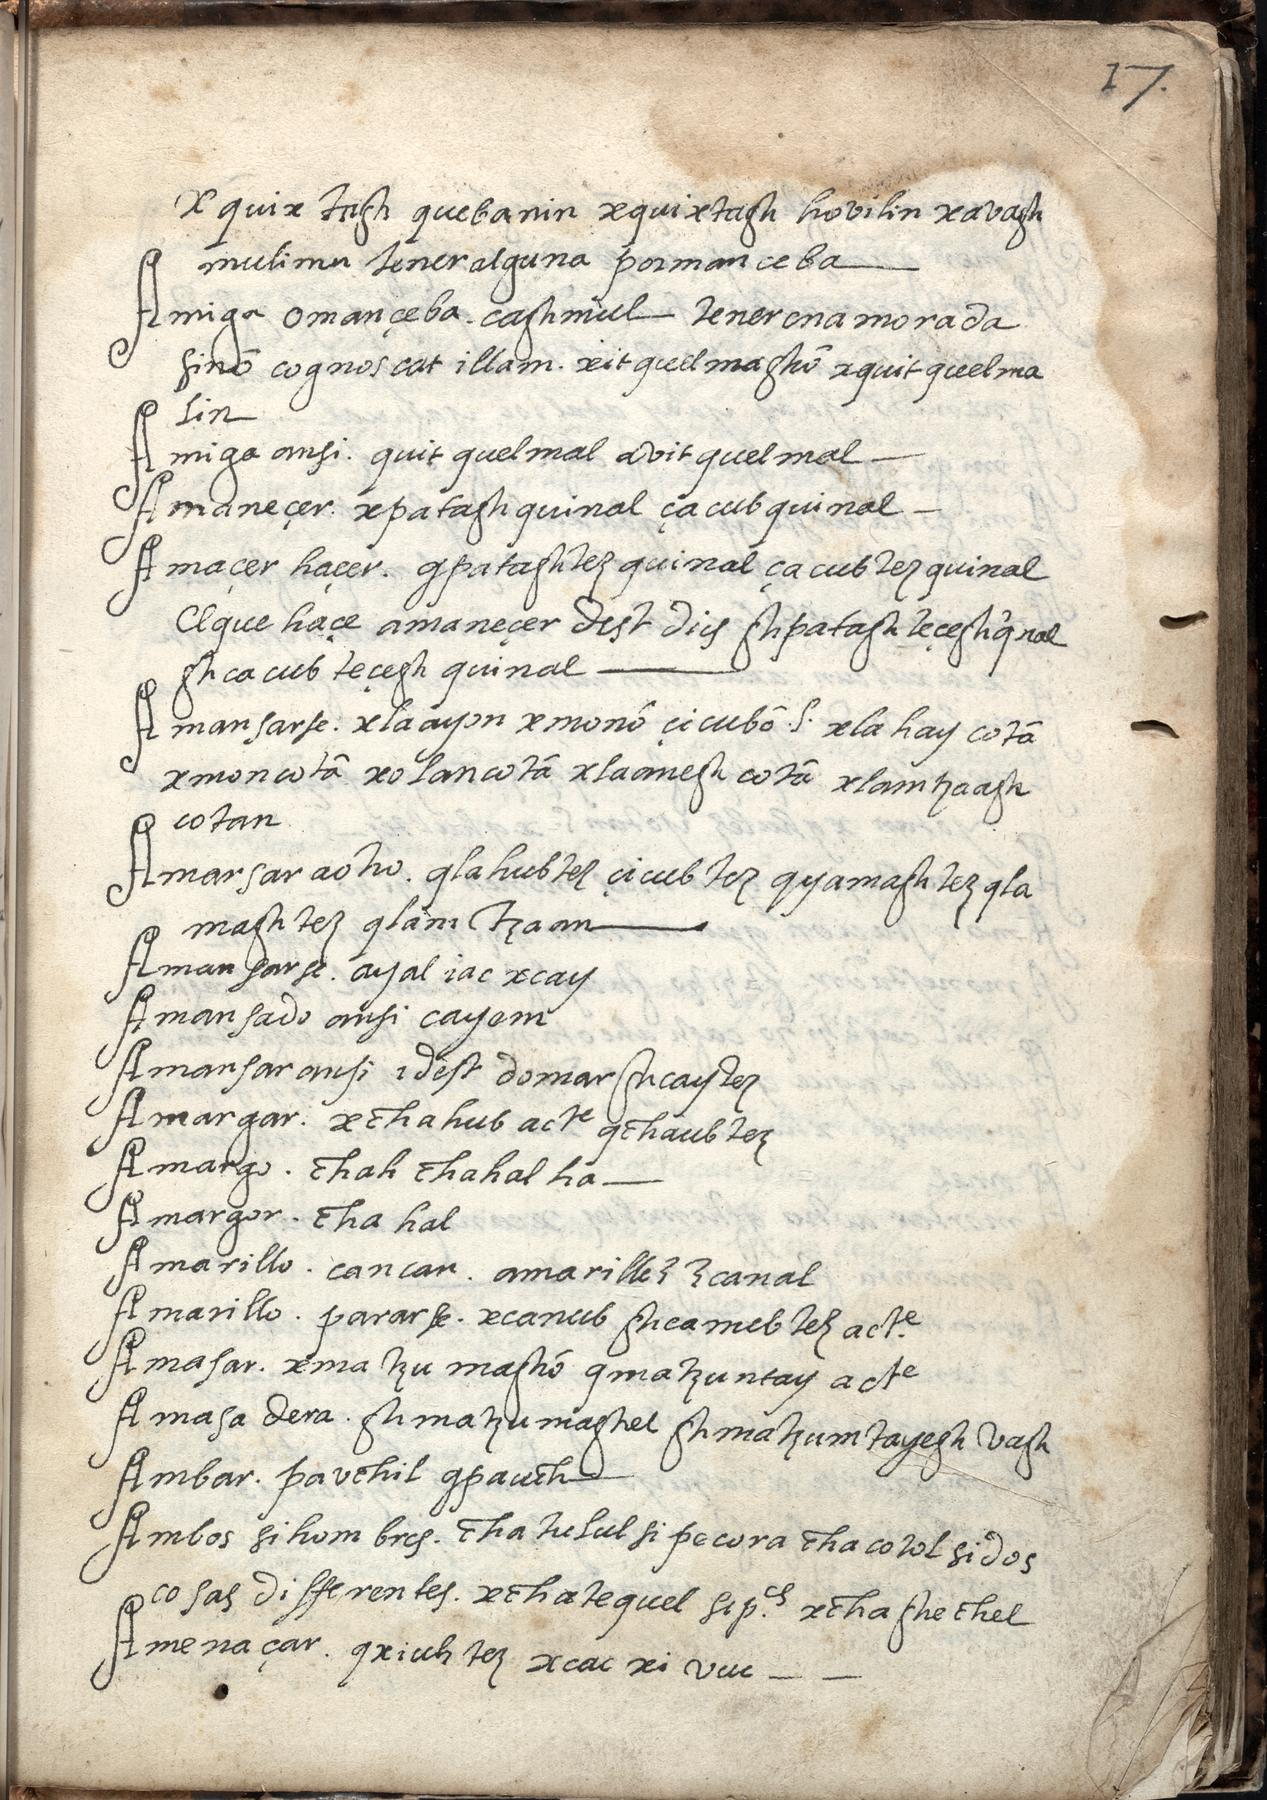 17.
xquix tagh quebanin xquixtagh hovilin xavagh
mulimu tener alguna por manceba
Amiga o mançeba. caghmul tener enamorada
sinō cognoscat illam. xit quelmaghō xquit quelma
lin
Amiga ansi. quit quelmal avit quelmal
Amaneçer. xpatagh quinal çacub quinal
Amaçer haçer. qpataghtez quinal çacubtez quinal
El que haçe amaneçer dest dies ghpatagh teçegh q̃nal
ghcacub teçegh quinal
Amansarse. xlaayon xmonō çicubō .s. xlahay cotā
xmoncotā xolancotā xlaanegh cotā xlamtzaagh
cotan
Amansar a otro. qlahubtez çicubtez qyamaghtez qla
maghtez qlamtzaan
Amansarse. ayal iac xcay
Amansado ansi cayem
Amansar ansi idest domar ghcaytez
Amargar. xchahub acte qchaubtez
Amargo. chah chahal ha
Amargor. chahal
Amarillo. cancan. amarillez zcanal
Amarillo. pararse. xcanub ghcamebtez acte
Amasar. xmatzu maghō qmatzuntay acte
Amasadera. ghmatzumaghel ghmatzumtayegh vagh
Ambar. pavchil qpauch
Ambos si hombres. chatulul si pecora chacotol si dos
cosas differentes. xchatequel si p.es xchaghechel
Amenaçar. qxiuhtez xcac xi vuc